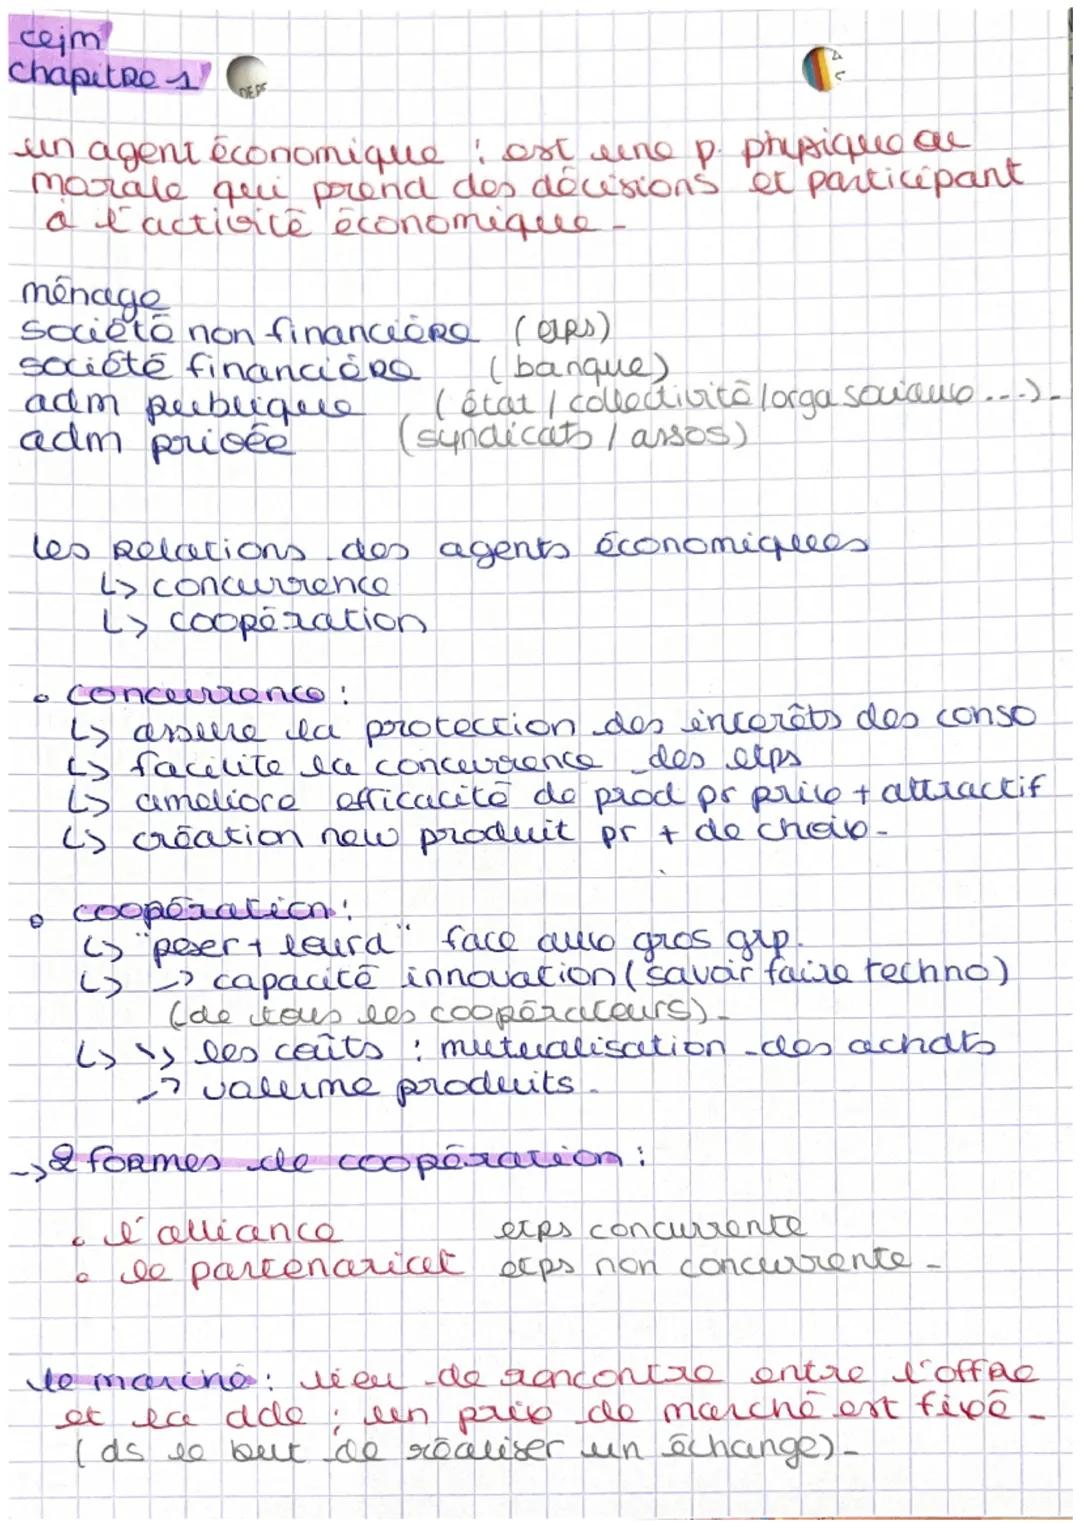 cejm
chapitre 1
un agent économique : est une p. physique ou
morale qui prend des décisions et participant
à l'activité économique -
ménage
société non financière (etps)
société financière (banque)
adm publique (état / collectivité / orga sociaux ...) -
adm privée (syndicats / assos)
les relations des agents économiques
↳ concurrence
↳ coopération
• concurrence :
↳ assure la protection des intérêts des conso
↳ facilite la concurrence des etps
↳ améliore efficacité de prod pr prix + attractif
↳ création new produit pr + de choix -
• coopération :
↳ "peser + lourd" face aux gros grp.
↳ ↗ capacité innovation (savoir faire techno)
(de tous les coopérateurs) -
↳ ↘ les coûts : mutualisation des achats
↗ volume produits -
→ 2 formes de coopération :
• l'alliance etps concurrente
• le partenariat etps non concurrente -
le marché : lieu de rencontre entre l'offre
et la dde ; un prix de marché est fixé -
(ds le but de réaliser un échange) -